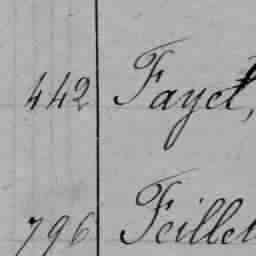 442 Fayet,
796 Feillet